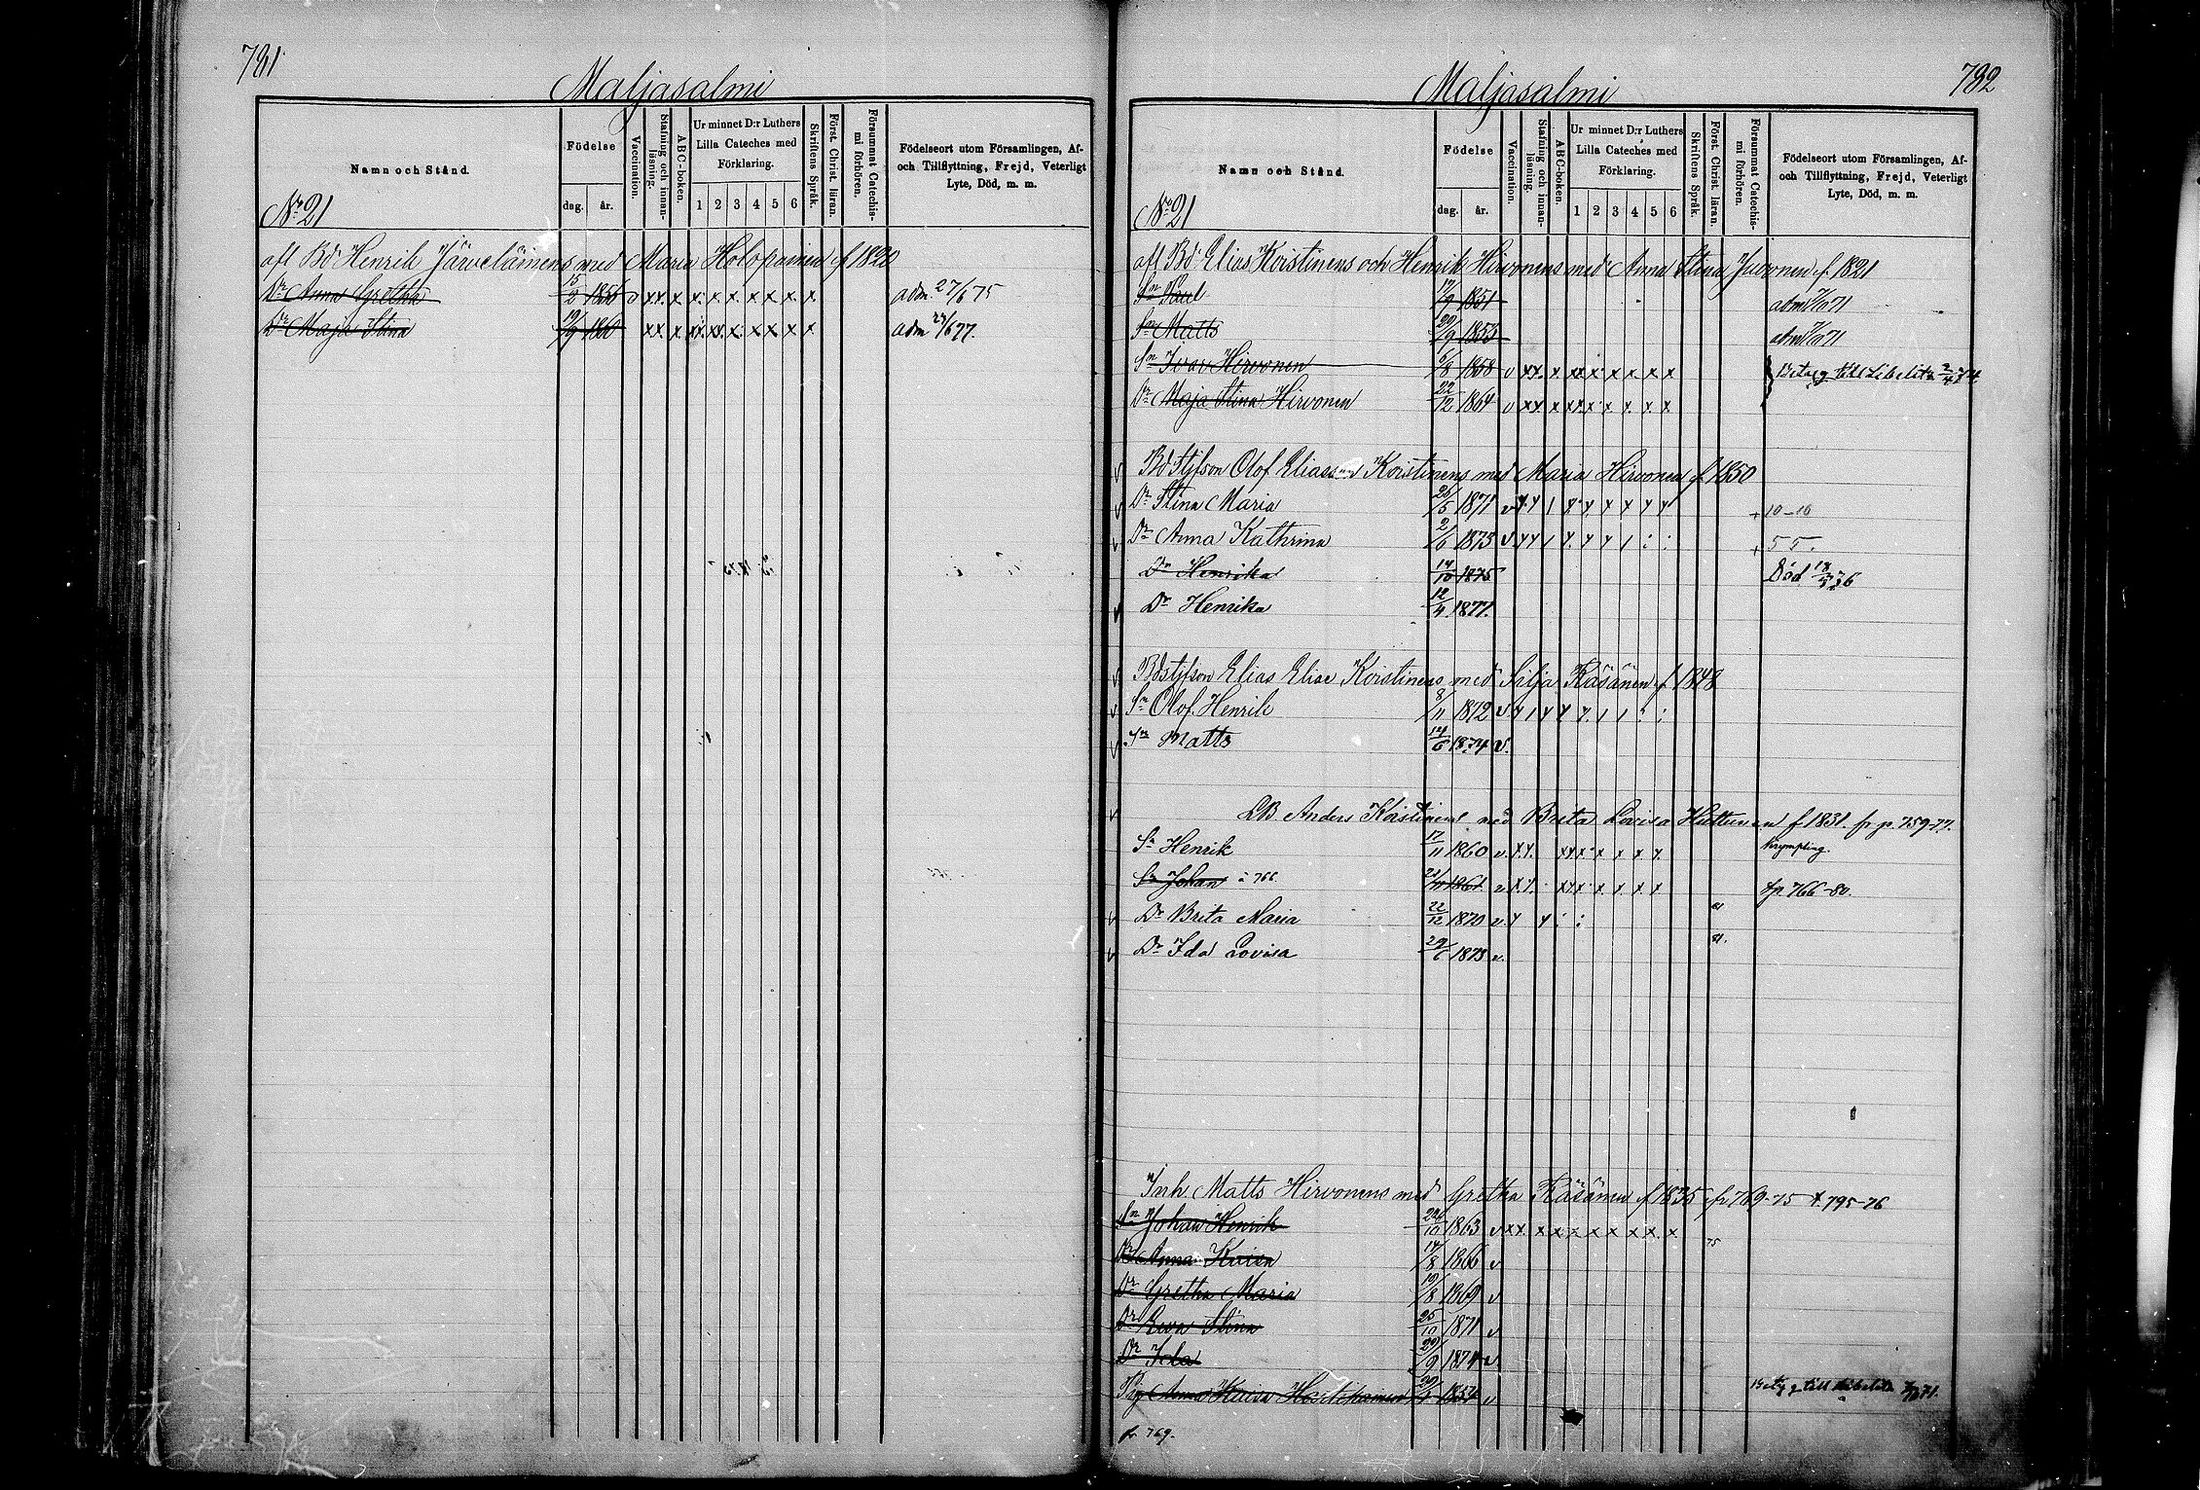 781
Maljasalmi
Namn och Stånd.
Födelse
dag. år.
Vaccination.
Stafning och innanläsning.
ABC-boken.
Ur minnet D:r Luthers Lilla Cateches med Förklaring.
1 2 3 4 5 6
Skriftens Språk.
Först. Christ. läran.
Försummat Catechismi förhören.
Födelseort utom Församlingen, Af- och Tillflyttning, Frejd, Veterligt Lyte, Död, m. m.
No 21
afl Bd Henrik Järveläinens med Maria Holopainen f 1820
Dr Anna Gretha 15/2 1856 v xx x x x x x x x x adm 27/6 75
Dr Maja Stina 19/9 1860 xx x xx xx x x x x x adm 27/6 77.
782
Maljasalmi
Namn och Stånd.
Födelse
dag. år.
Vaccination.
Stafning och innanläsning.
ABC-boken.
Ur minnet D:r Luthers Lilla Cateches med Förklaring.
1 2 3 4 5 6
Skriftens Språk.
Först. Christ. läran.
Försummat Catechismi förhören.
Födelseort utom Församlingen, Af- och Tillflyttning, Frejd, Veterligt Lyte, Död, m. m.
No 21
afl Bd Elias Koistinens och Henrik Hirvonens med Anna Stina Juvonen f. 1821
Sn Paul 17/9 1851 adm 71
Sn Matts 20/9 1853 adm 71
Sn Ivar Hirvonen 6/8 1858 v xx x xx x x x x x Betyg till Libelits 2/4 74
Dr Maja Stina Hirvonen 22/12 1864 v xx x xx x x x x x
Bd Styfson Olof Eliasson Koistinens med Maria Hirvonen f 1850
Dr Stina Maria 26/5 1871 v x x / x x x x x x + 10-10
Dr Anna Kathrina 2/6 1873 v x x / x x x / : : + 5 5.
Dr Henrika 14/10 1875 Död 76
Dr Henrika 12/4 1877.
Bdstyfson Elias Eliae Koistinens med Silja Räsänen f 1848
Sn Olof Henrik 8/11 1872 v x / x x x / / : :
Sn Matts 14/6 1874 v.
LB. Anders Koistinens med Brita Lovisa Huttunen f 1831. fr p. 759-77.
Sn Henrik 17/11 1860 v. x x. xxx x x x x Krympling.
Sn Johan 766 21/11 1861 v x x xxx x x x x fp. 766-80.
Dr Brita Maria 22/12 1870 v. x x : : 81
Dr Ida Lovisa 29/6 1873 v. 81.
Inh. Matts Hirvonens med Gretha Räsänen f 1835 fr 769-75 t 795-76
Sn Johan Henrik 24/10 1863 v xx x x x x x x x x
Dr Anna Kaisa 14/8 1866 v 75
Dr Gretha Maria 19/8 1869 v
Dr Eva Stina 25/10 1871 v
Dr Ida 29/9 1874 v
Pig Anna Kaisa 1854 v Betyg till Libelits 71.
fr 769.